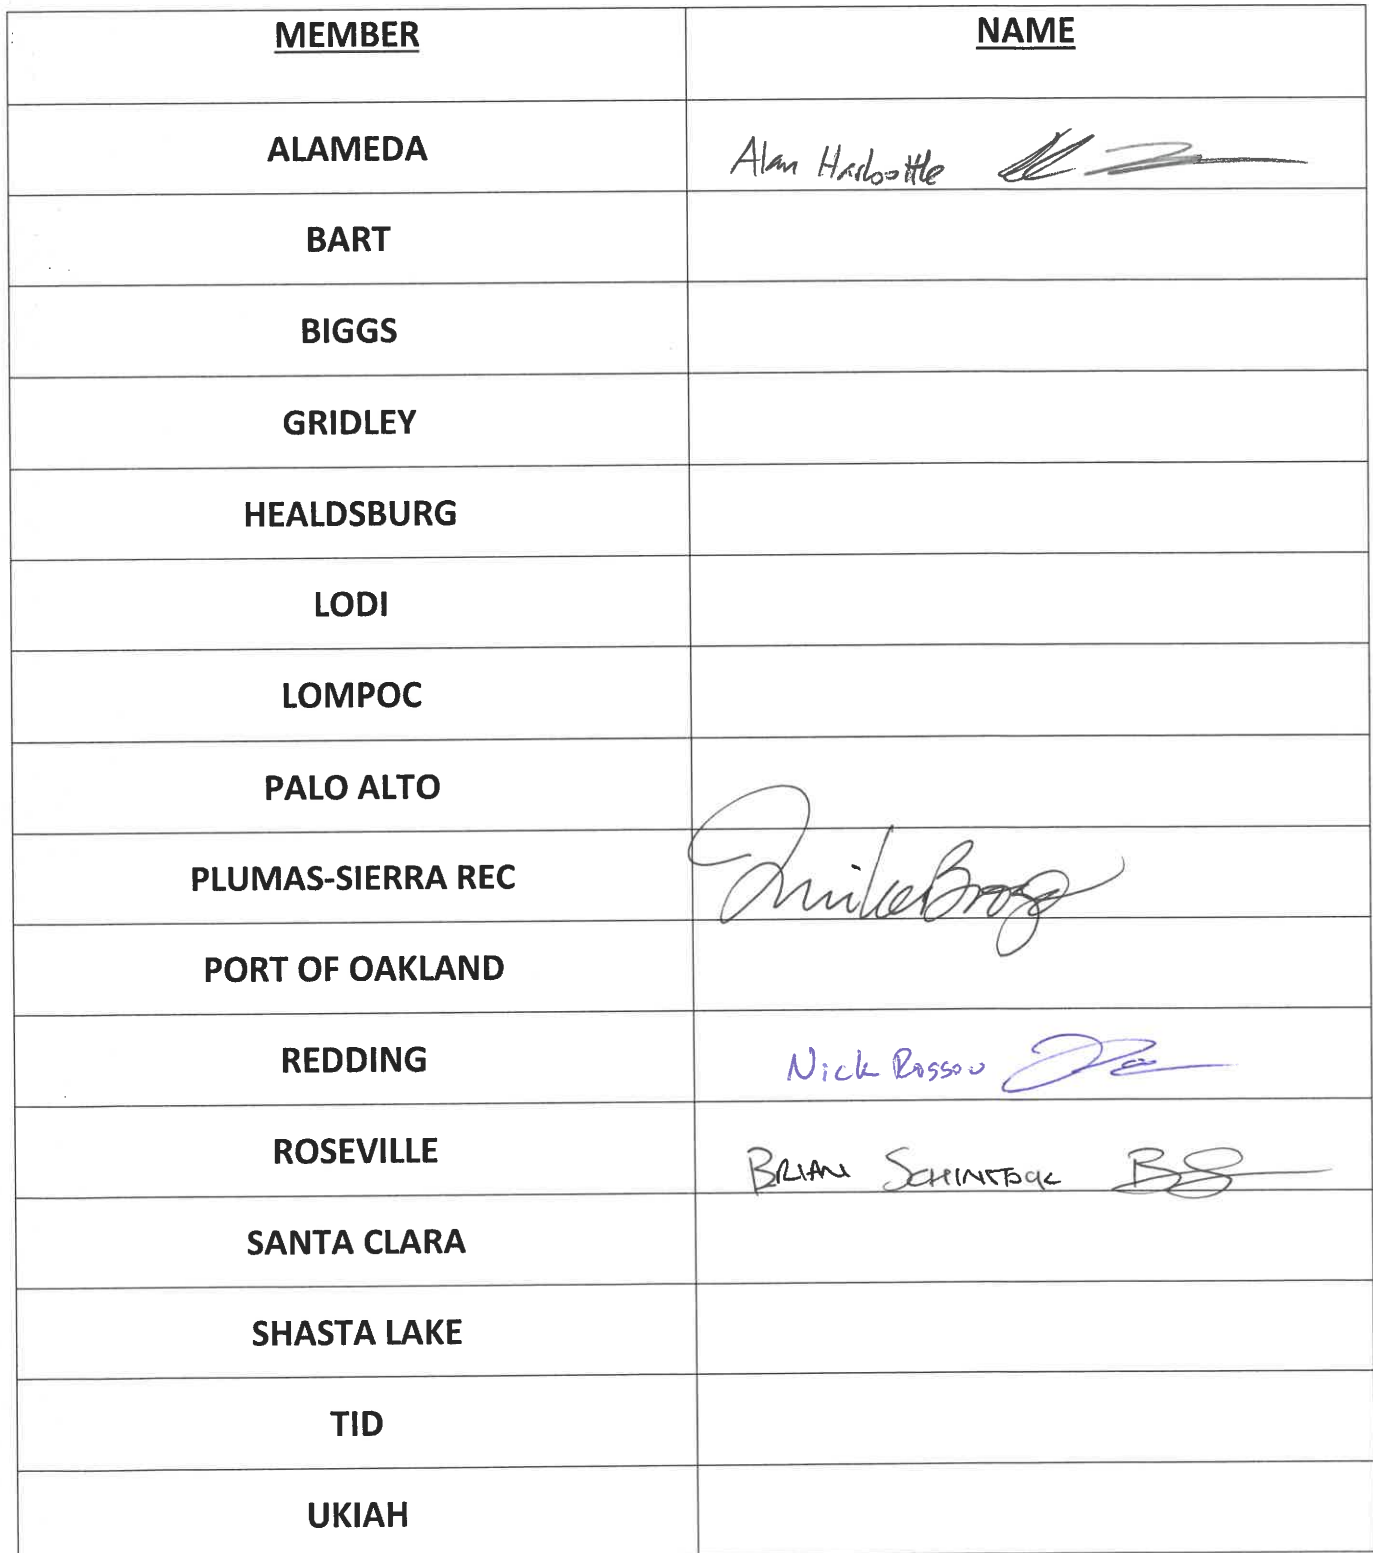 MEMBER NAME
ALAMEDA Alan Harbottle
BART
BIGGS
GRIDLEY
HEALDSBURG
LODI
LOMPOC
PALO ALTO
PLUMAS-SIERRA REC Mike Brozo
PORT OF OAKLAND
REDDING Nick Rossow
ROSEVILLE BRIAN SCHINSTOCK
SANTA CLARA
SHASTA LAKE
TID
UKIAH